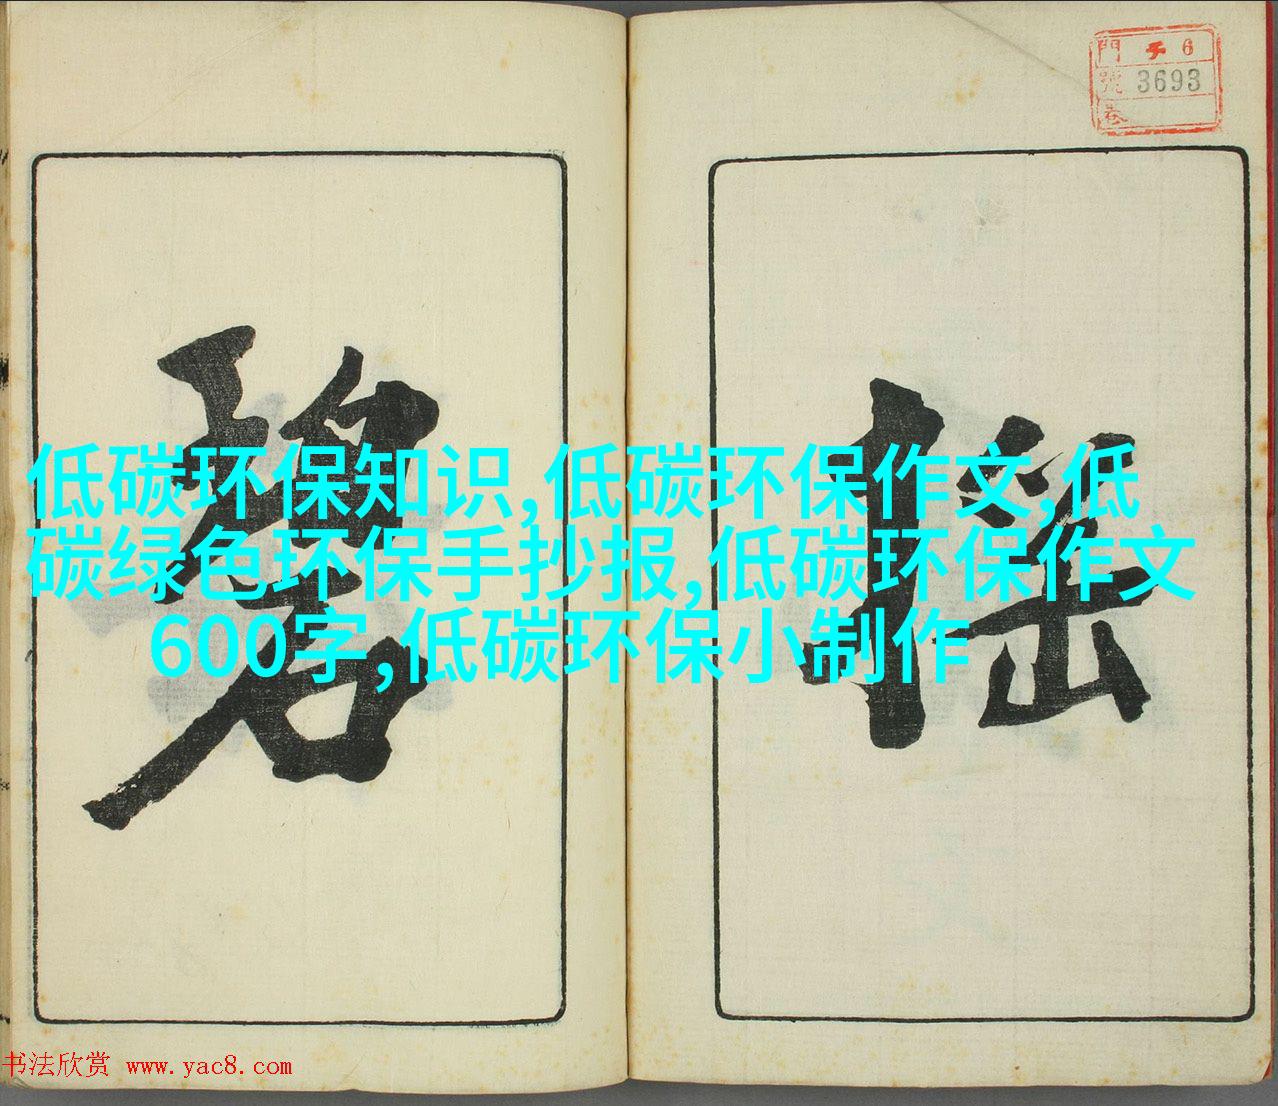 門 チ 6
號 3693
巻
搖
碧
低碳环保知识,低碳环保作文,低
碳绿色环保手抄报,低碳环保作文
600字,低碳环保小制作
书法欣赏 www.yac8.com